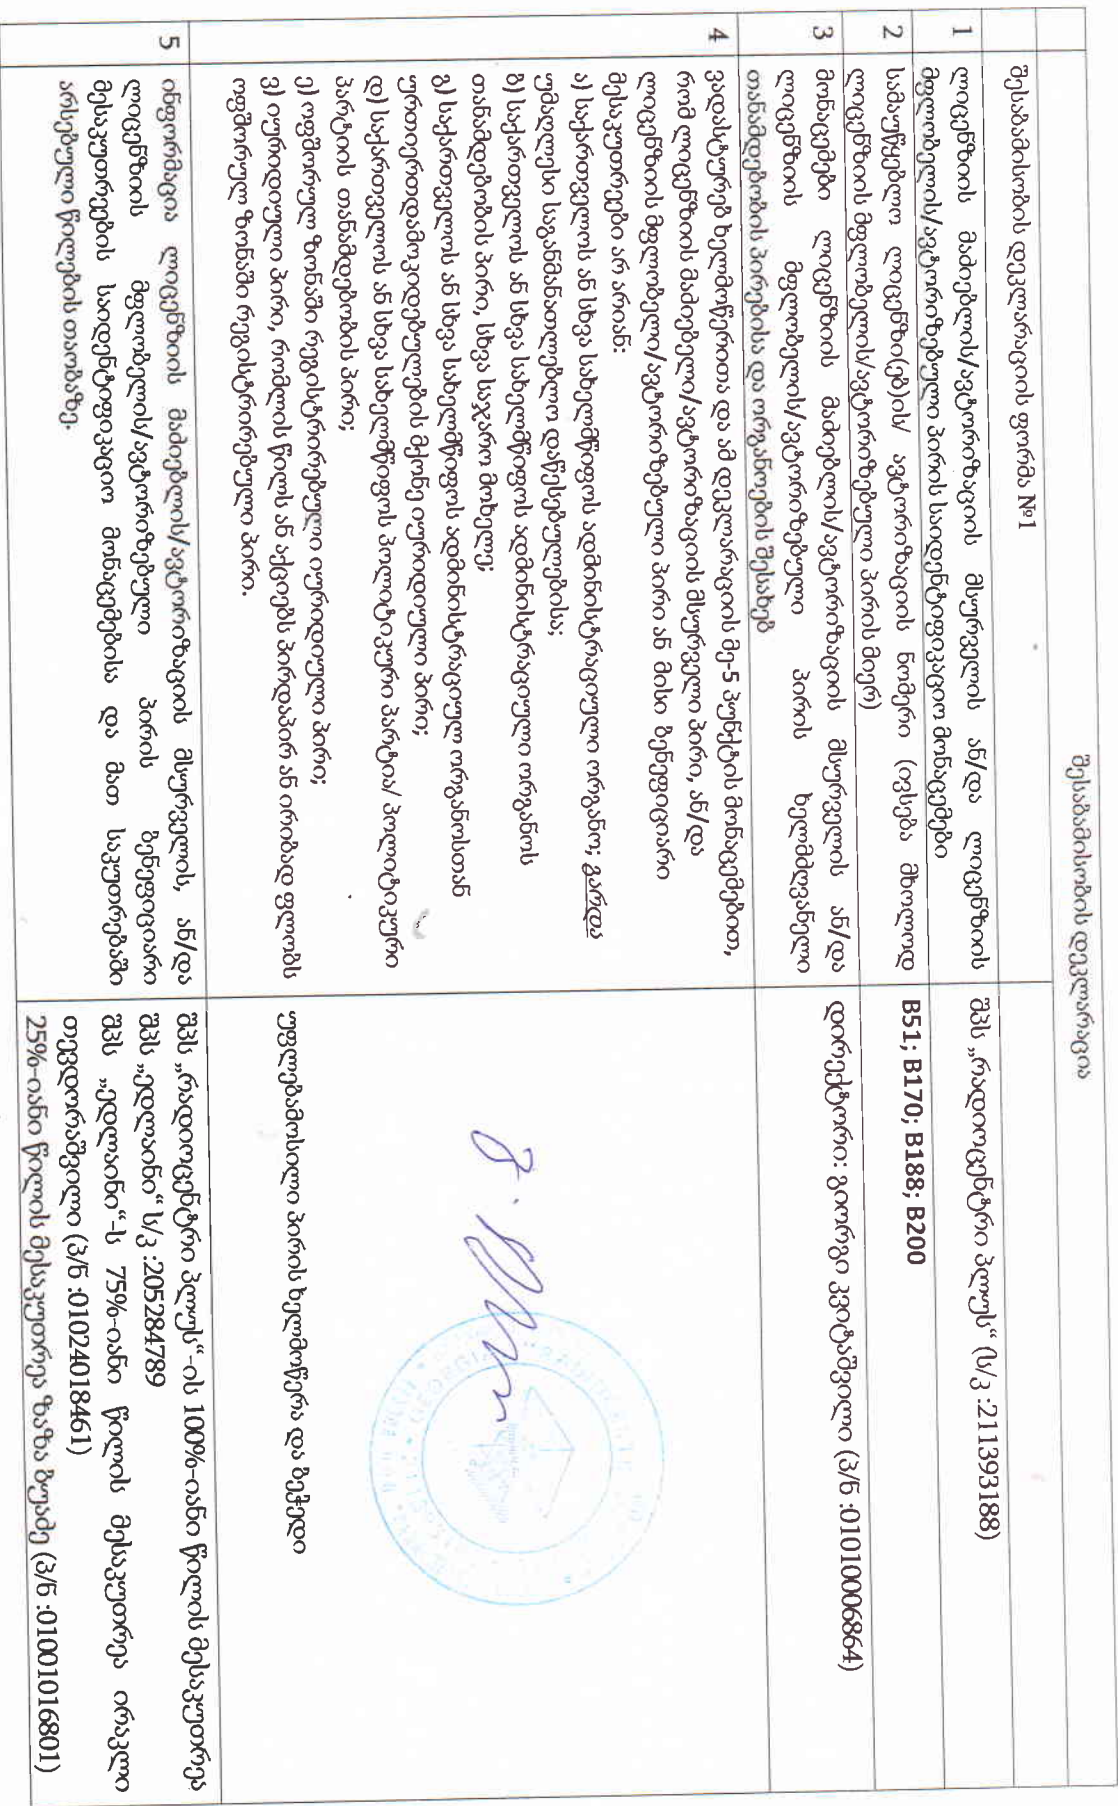 შესაბამისობის დეკლარაცია
შესაბამისობის დეკლარაციის ფორმა №1
1
ლიცენზიის მაძიებლის/ავტორიზაციის მსურველის ან/და ლიცენზიის
მფლობელის/ავტორიზებული პირის საიდენტიფიკაციო მონაცემები
შპს „რადიოცენტრი პლუს“ (ს/კ :211393188)
2
სამაუწყებლო ლიცენზი(ებ)ის/ ავტორიზაციის ნომერი (ივსება მხოლოდ
ლიცენზიის მფლობელის/ავტორიზებული პირის მიერ)
B51; B170; B188; B200
3
მონაცემები ლიცენზიის მაძიებლის/ავტორიზაციის მსურველის ან/და
ლიცენზიის მფლობელის/ავტორიზებული პირის ხელმძღვანელი
თანამდებობის პირებისა და ორგანოების შესახებ
დირექტორი: გიორგი კვიტაშვილი (პ/ნ :01010006864)
4
ვადასტურებ ხელმოწერითა და ამ დეკლარაციის მე-5 პუნქტის მონაცემებით,
რომ ლიცენზიის მაძიებელი/ავტორიზაციის მსურველი პირი, ან/და
ლიცენზიის მფლობელი/ავტორიზებული პირი ან მისი ბენეფიციარი
მესაკუთრეები არ არიან:
ა) საქართველოს ან სხვა სახელმწიფოს ადმინისტრაციული ორგანო; გარდა
უმაღლესი საგანმანათლებლო დაწესებულებისა;
ბ) საქართველოს ან სხვა სახელმწიფოს ადმინისტრაციული ორგანოს
თანამდებობის პირი, სხვა საჯარო მოხელე;
გ) საქართველოს ან სხვა სახელმწიფოს ადმინისტრაციულ ორგანოსთან
ურთიერთდამოკიდებულების მქონე იურიდიული პირი;
დ) საქართველოს ან სხვა სახელმწიფოს პოლიტიკური პარტია/ პოლიტიკური
პარტიის თანამდებობის პირი;
ე) ოფშორულ ზონაში რეგისტრირებული იურიდიული პირი;
ვ) იურიდიული პირი, რომლის წილს ან აქციებს პირდაპირ ან ირიბად ფლობს
ოფშორულ ზონაში რეგისტრირებული პირი.
უფლებამოსილი პირის ხელმოწერა და ბეჭედი
5
ინფორმაცია ლიცენზიის მაძიებლის/ავტორიზაციის მსურველის, ან/და
ლიცენზიის მფლობელის/ავტორიზებული პირის ბენეფიციარი
მესაკუთრეების საიდენტიფიკაციო მონაცემებისა და მათ საკუთრებაში
არსებული წილების თაობაზე.
შპს „რადიოცენტრი პლუს“-ის 100%-იანი წილის მესაკუთრეა
შპს „ედლაინი“ ს/კ :205284789
შპს „ედლაინი“-ს 75%-იანი წილის მესაკუთრეა ირაკლი
თევდორაშვილი (პ/ნ :01024018461)
25%-იანი წილის მესაკუთრეა ზაზა ბუაძე (პ/ნ :01001016801)